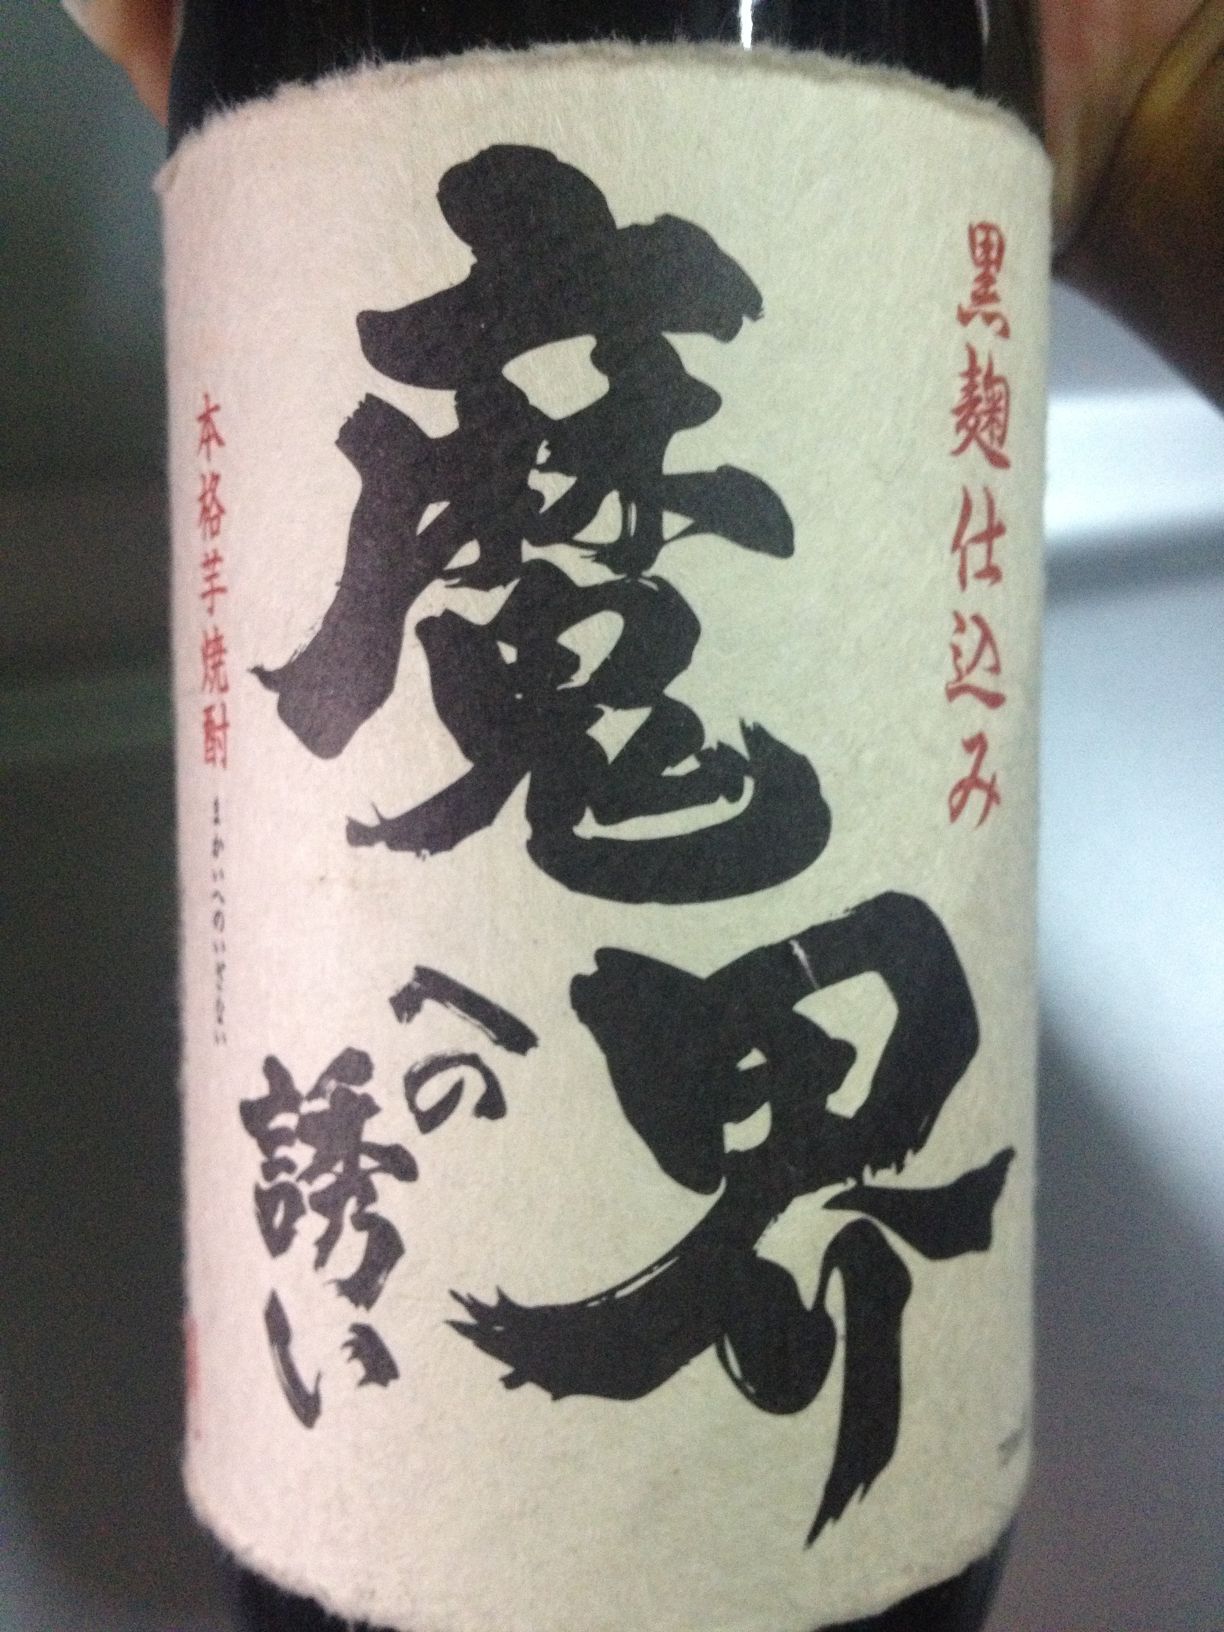 黒麹仕込み
魔界
への
誘い
本格芋焼酎
まかいへのいざない